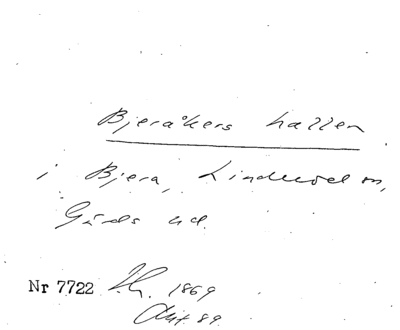 Bjeråkers hallen
i Bjera, Linderöd sn,
Gärds hd.
Nr 7722 1869
Akt 89